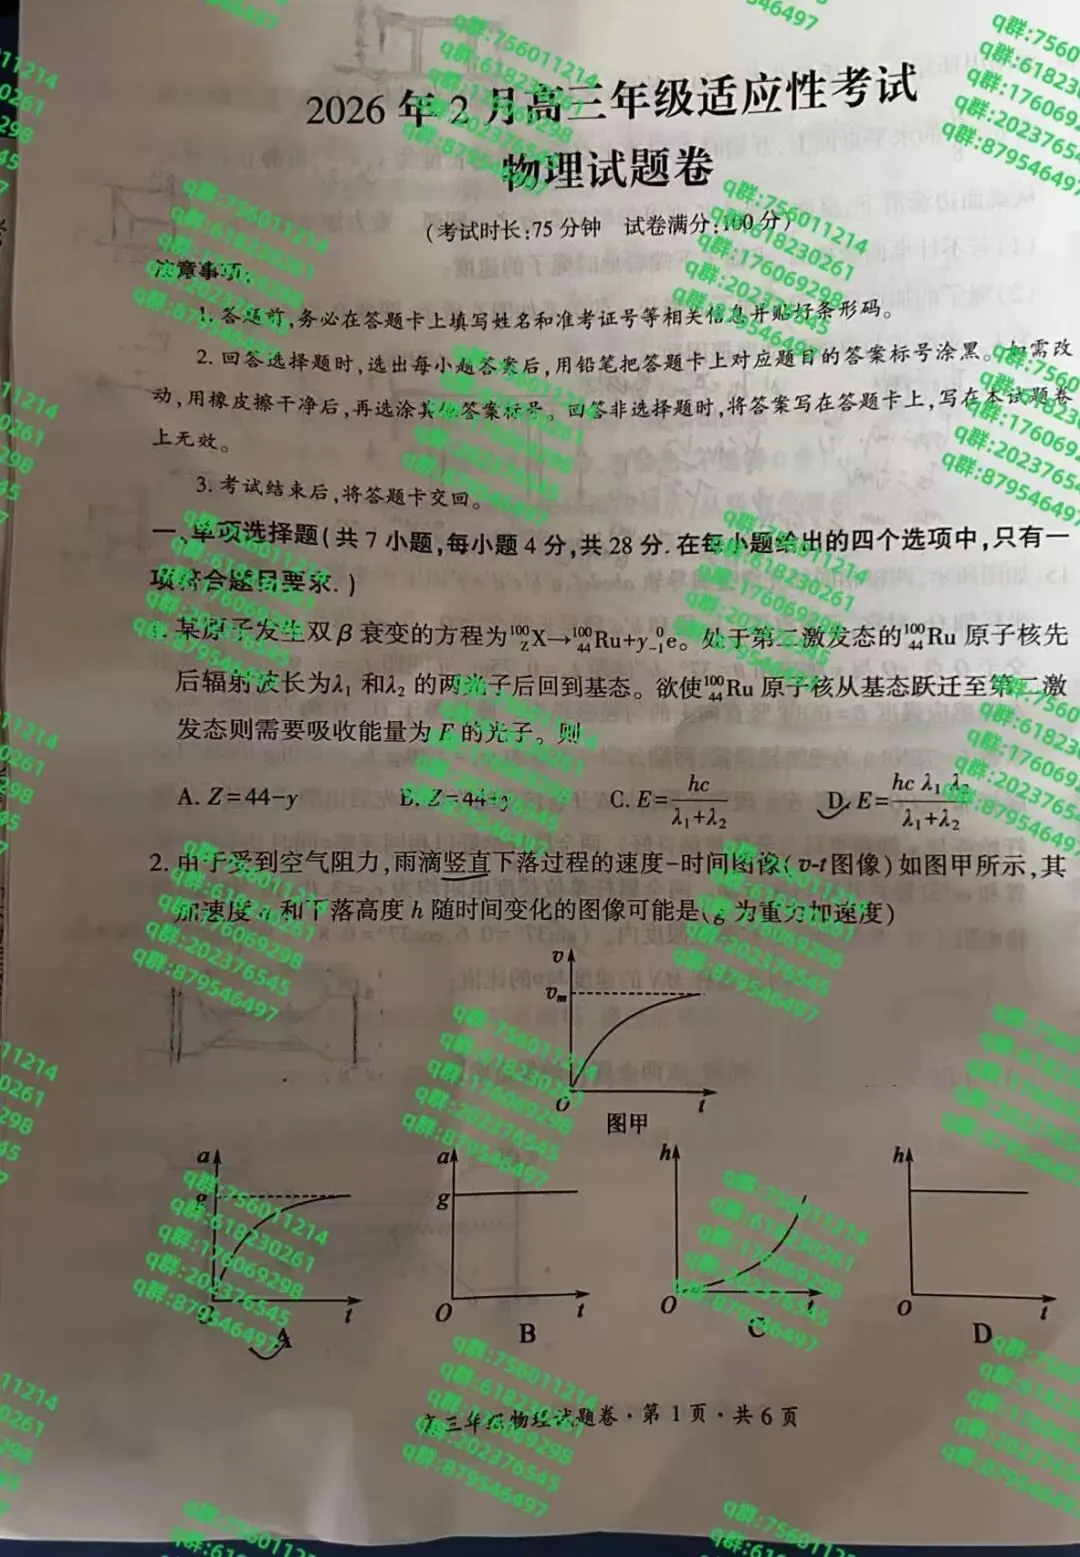 2026年2月高三年级适应性考试
物理试题卷
(考试时长:75分钟 试卷满分:100分)
注意事项:
1.答题前,务必在答题卡上填写姓名和准考证号等相关信息并贴好条形码。
2.回答选择题时,选出每小题答案后,用铅笔把答题卡上对应题目的答案标号涂黑。如需改
动,用橡皮擦干净后,再选涂其他答案标号。回答非选择题时,将答案写在答题卡上,写在本试题卷
上无效。
3.考试结束后,将答题卡交回。
一、单项选择题(共7小题,每小题4分,共28分.在每小题给出的四个选项中,只有一
项符合题目要求.)
1.某原子发生双β衰变的方程为¹⁰⁰_Z X→¹⁰⁰₄₄Ru+y⁰₋₁e。处于第二激发态的¹⁰⁰₄₄Ru原子核先
后辐射波长为λ₁和λ₂的两光子后回到基态。欲使¹⁰⁰₄₄Ru原子核从基态跃迁至第二激
发态则需要吸收能量为E的光子。则
A. Z=44-y B. Z=44+y C. E=hc/(λ₁+λ₂) D. E=hc λ₁ λ₂/(λ₁+λ₂)
2.由于受到空气阻力,雨滴竖直下落过程的速度-时间图像(v-t图像)如图甲所示,其
加速度a和下落高度h随时间变化的图像可能是(g为重力加速度)
v
vₘ
O t
图甲
a a h h
g g
O t O t O t O t
A B C D
高三年级物理试题卷·第1页·共6页
q群:756011214
q群:618230261
q群:176069298
q群:202376545
q群:879546497